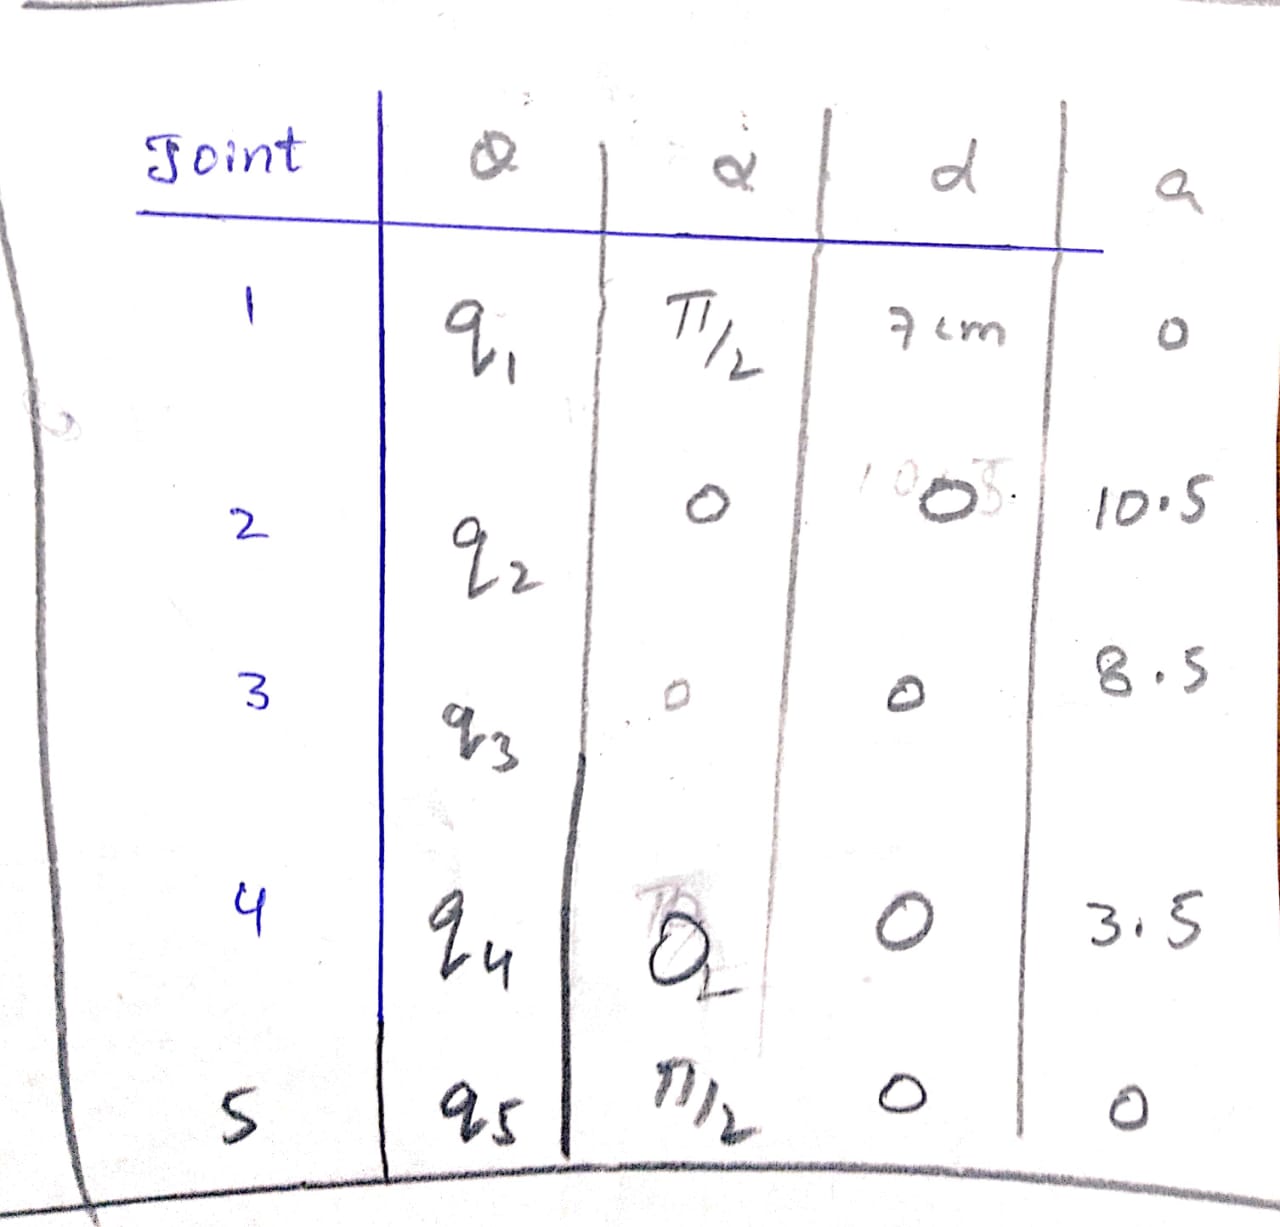 Joint θ α d a
1 q1 π/2 7cm 0
2 q2 0 0 10.5
3 q3 0 0 8.5
4 q4 0 0 3.5
5 q5 π/2 0 0